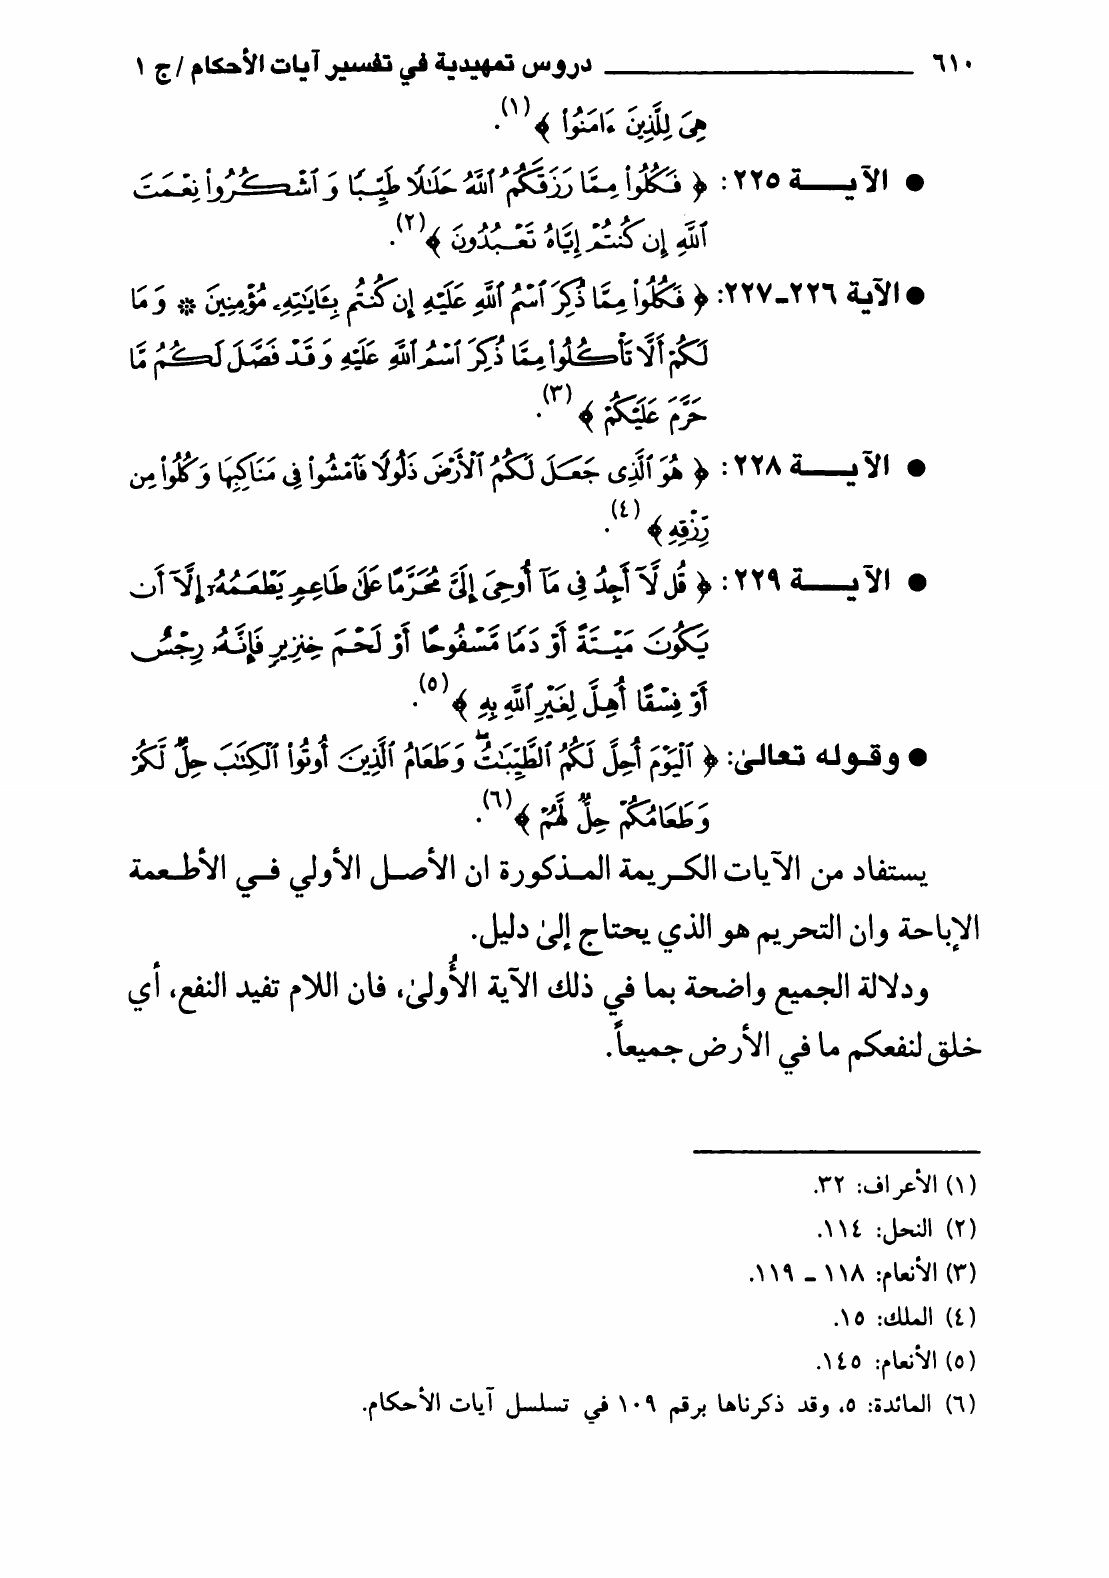 ٦١٠ ــــــــــــــــــــ دروس تمهيدية في تفسير آيات الأحكام / ج ١
هِىَ لِلَّذِينَ ءَامَنُواْ ﴾(١).
● الآيـــة ٢٢٥: ﴿ فَكُلُواْ مِمَّا رَزَقَكُمُ ٱللَّهُ حَلَٰلًا طَيِّبًا وَٱشْكُرُواْ نِعْمَتَ
ٱللَّهِ إِن كُنتُمْ إِيَّاهُ تَعْبُدُونَ ﴾(٢).
● الآية ٢٢٦ـ٢٢٧: ﴿ فَكُلُواْ مِمَّا ذُكِرَ ٱسْمُ ٱللَّهِ عَلَيْهِ إِن كُنتُم بِـَٔايَٰتِهِۦ مُؤْمِنِينَ * وَمَا
لَكُمْ أَلَّا تَأْكُلُواْ مِمَّا ذُكِرَ ٱسْمُ ٱللَّهِ عَلَيْهِ وَقَدْ فَصَّلَ لَكُم مَّا
حَرَّمَ عَلَيْكُمْ ﴾(٣).
● الآيـــة ٢٢٨: ﴿ هُوَ ٱلَّذِى جَعَلَ لَكُمُ ٱلْأَرْضَ ذَلُولًا فَٱمْشُواْ فِى مَنَاكِبِهَا وَكُلُواْ مِن
رِّزْقِهِ ﴾(٤).
● الآيـــة ٢٢٩: ﴿ قُل لَّآ أَجِدُ فِى مَآ أُوحِىَ إِلَىَّ مُحَرَّمًا عَلَىٰ طَاعِمٍ يَطْعَمُهُۥٓ إِلَّآ أَن
يَكُونَ مَيْتَةً أَوْ دَمًا مَّسْفُوحًا أَوْ لَحْمَ خِنزِيرٍ فَإِنَّهُۥ رِجْسٌ
أَوْ فِسْقًا أُهِلَّ لِغَيْرِ ٱللَّهِ بِهِ ﴾(٥).
● وقوله تعالىٰ: ﴿ ٱلْيَوْمَ أُحِلَّ لَكُمُ ٱلطَّيِّبَٰتُ ۖ وَطَعَامُ ٱلَّذِينَ أُوتُواْ ٱلْكِتَٰبَ حِلٌّ لَّكُمْ
وَطَعَامُكُمْ حِلٌّ لَّهُمْ ﴾(٦).
يستفاد من الآيات الكريمة المذكورة ان الأصل الأولي في الأطعمة
الإباحة وان التحريم هو الذي يحتاج إلىٰ دليل.
ودلالة الجميع واضحة بما في ذلك الآية الأُولىٰ، فان اللام تفيد النفع، أي
خلق لنفعكم ما في الأرض جميعاً.
(١) الأعراف: ٣٢.
(٢) النحل: ١١٤.
(٣) الأنعام: ١١٨ ـ ١١٩.
(٤) الملك: ١٥.
(٥) الأنعام: ١٤٥.
(٦) المائدة: ٥، وقد ذكرناها برقم ١٠٩ في تسلسل آيات الأحكام.